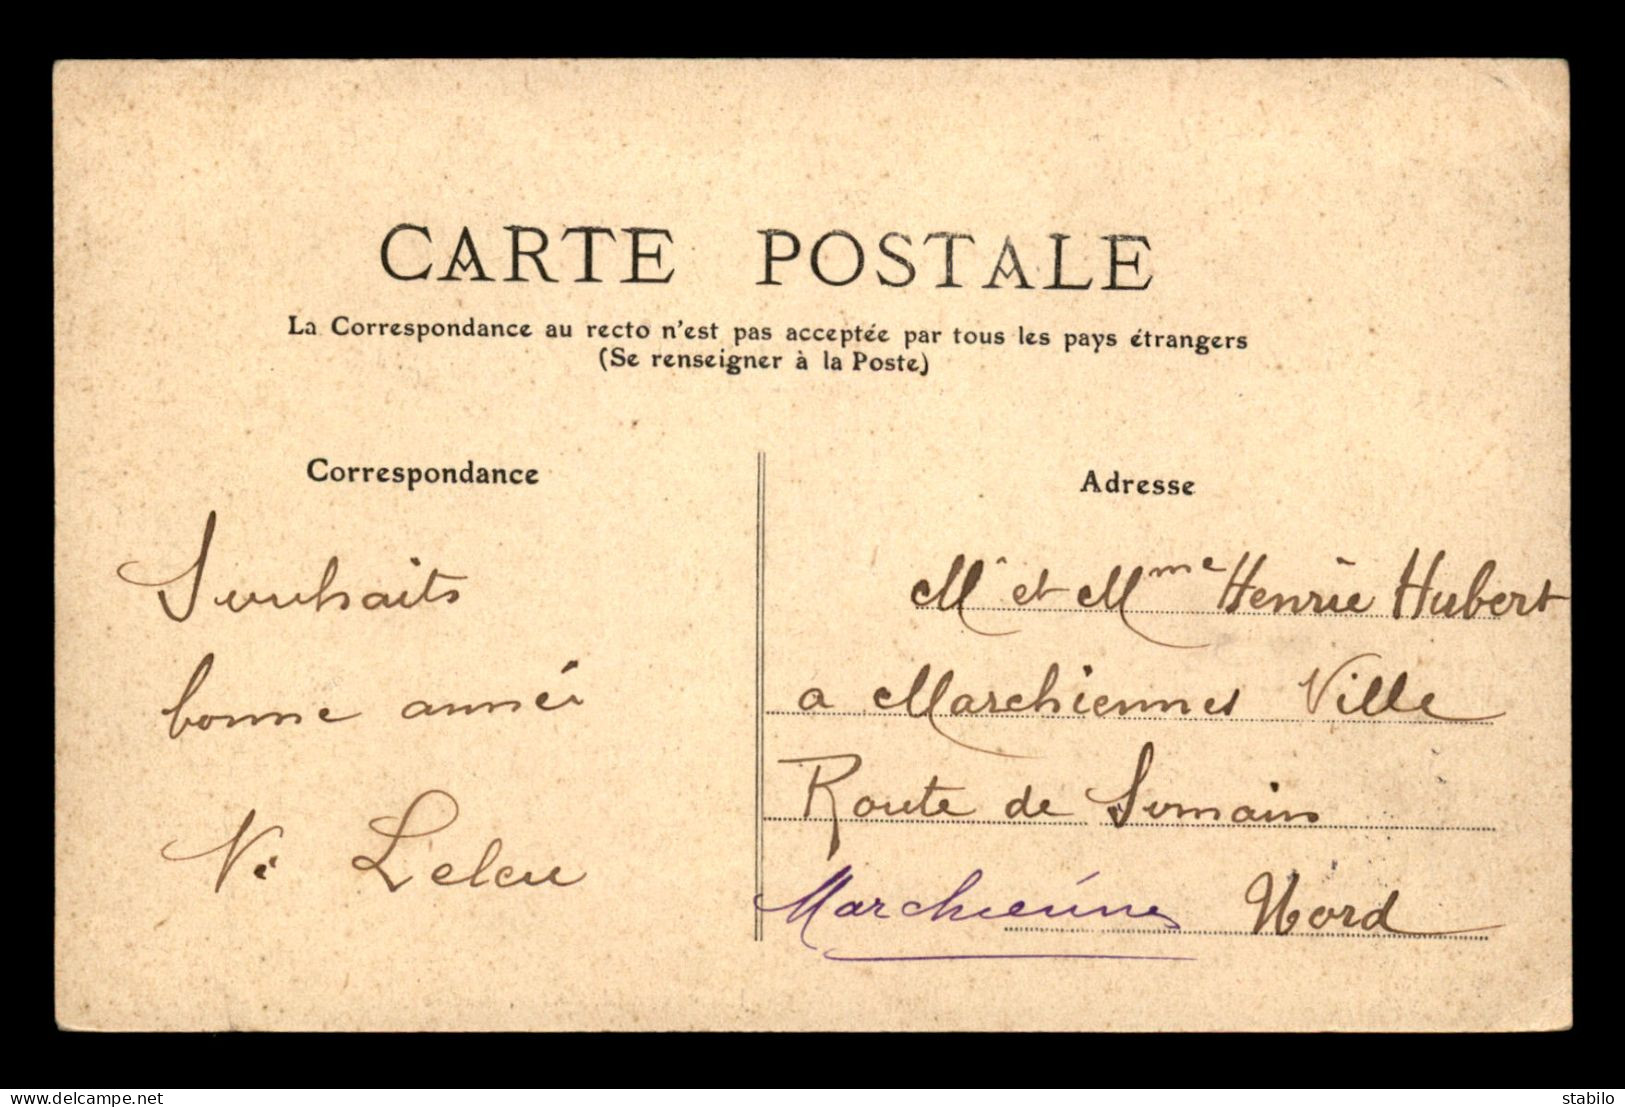 CARTE POSTALE
La Correspondance au recto n'est pas acceptée par tous les pays étrangers
(Se renseigner à la Poste)
Correspondance
Souhaits
bonne année
Ve Leleu
Adresse
Mr et Mme Henrie Hubert
a Marchiennes Ville
Route de Somain
Marchiennes Nord
delcampe.net
stabilo